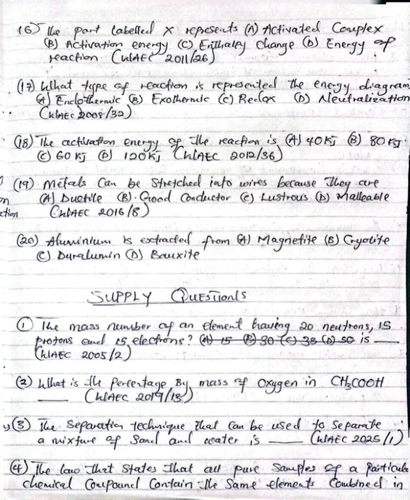 16) The part labelled X represents (A) Activated Complex
(B) Activation energy (C) Enthalpy change (D) Energy of
reaction (WAEC 2011/26)
(17) What type of reaction is represented the energy diagram
(A) Endothermic (B) Exothermic (C) Redox (D) Neutralization
(WAEC 2005/32)
(18) The activation energy of the reaction is (A) 40KJ (B) 80KJ
(C) 60KJ (D) 120KJ (WAEC 2012/36)
(19) Metals Can be Stretched into wires because They are
(A) Ductile (B) Good Conductor (C) Lustrous (D) Malleable
(WAEC 2016/8)
(20) Aluminium is extracted from (A) Magnetite (B) Cryolite
(C) Duralumin (D) Bauxite
SUPPLY QUESTIONS
(1) The mass number of an element having 20 neutrons, 15
protons and 15 electrons? (A) 15 (B) 30 (C) 35 (D) 50 is ___
(WAEC 2005/2)
(2) What is the percentage By mass of Oxygen in CH3COOH
___ (WAEC 2019/18)
(3) The Separation technique that can be used to Separate
a mixture of Sand and water is ___ (WAEC 2025/1)
(4) The law that states That all pure Samples of a Particular
chemical Compound Contain the Same elements Combined in